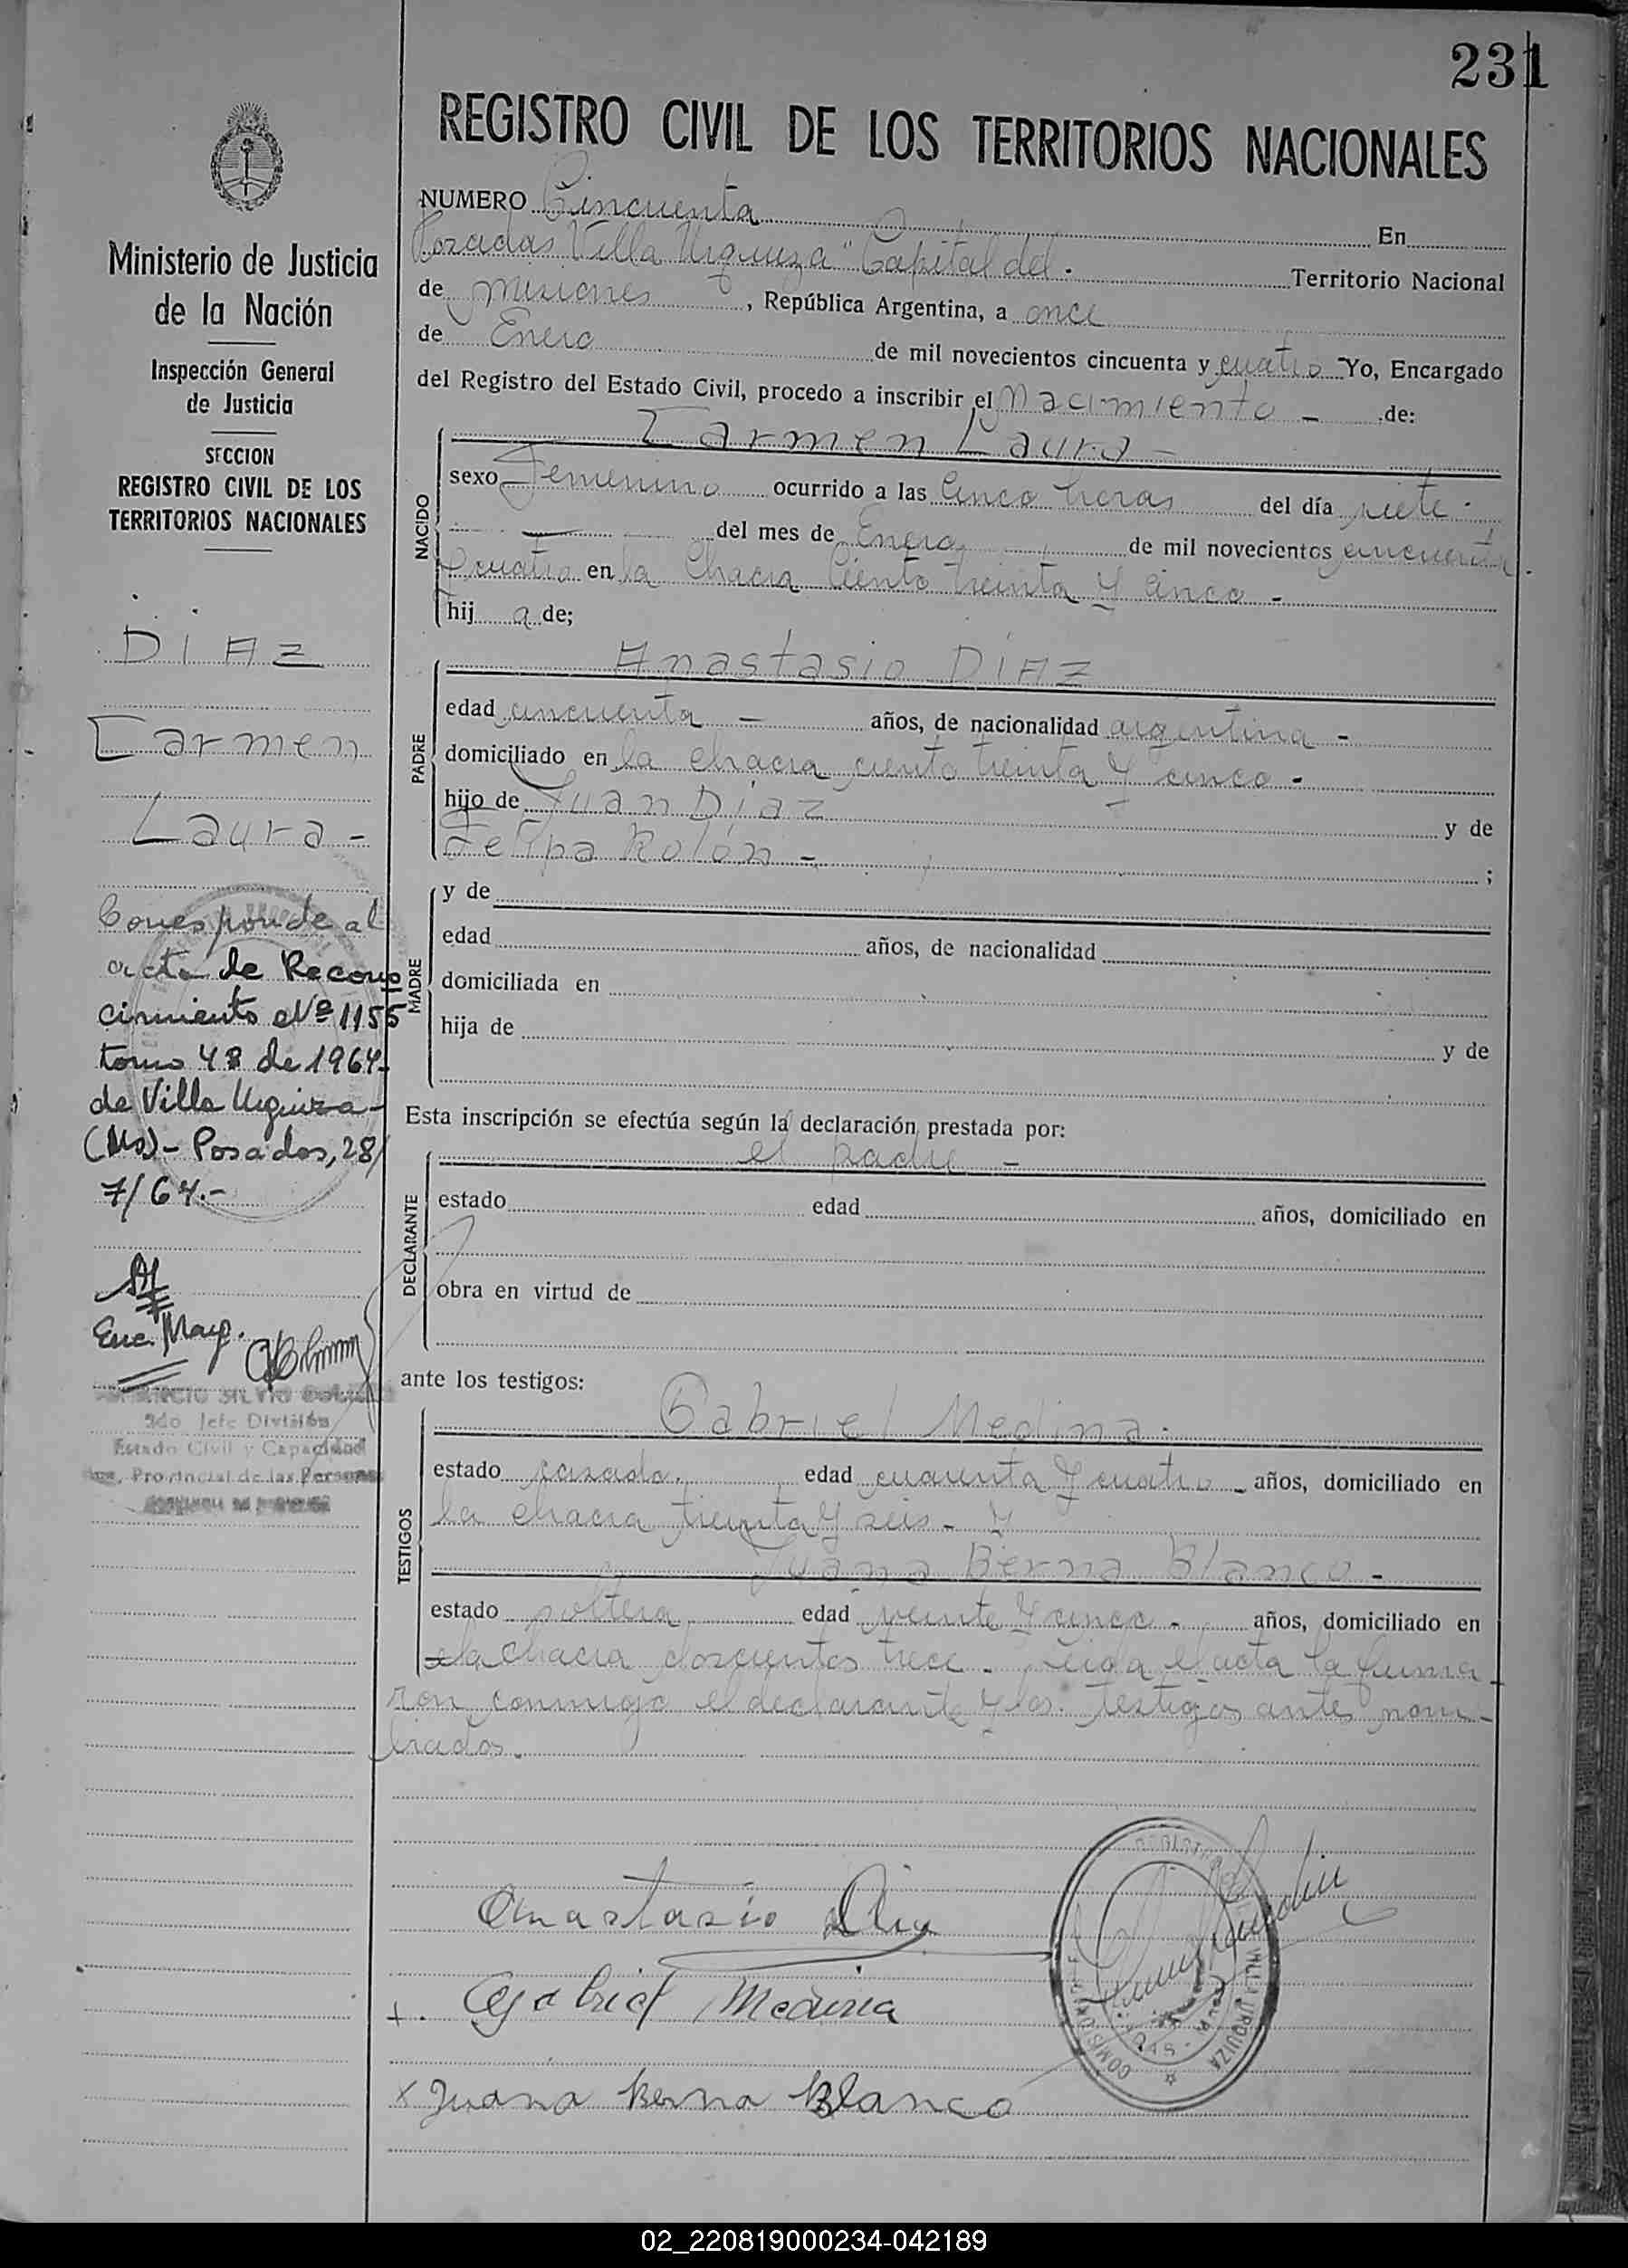 231
REGISTRO CIVIL DE LOS TERRITORIOS NACIONALES
Ministerio de Justicia
de la Nación
Inspección General
de Justicia
SECCION
REGISTRO CIVIL DE LOS
TERRITORIOS NACIONALES
DIAZ
Carmen
Laura -
Corresponde al
acta de Recono
cimiento Nº 1155
tomo 48 de 1964-
de Villa Urquiza-
(Ms)- Posadas, 28/
7/64.-
Enc. Mayp.
2do Jefe División
Estado Civil y Capacidad
Provincial de las Personas
NUMERO Cincuenta En
Pozadas "Villa Urquiza" Capital del. Territorio Nacional
de Misiones, República Argentina, a once
de Enero de mil novecientos cincuenta y cuatro Yo, Encargado
del Registro del Estado Civil, procedo a inscribir el Nacimiento - de:
NACIDO
Carmen Laura -
sexo Femenino ocurrido a las Cinco horas del día siete -
del mes de Enero de mil novecientos cincuenta
y cuatro en la Chacra Ciento treinta y cinco -
hij a de;
PADRE
Anastasio DIAZ
edad cincuenta - años, de nacionalidad argentina -
domiciliado en la chacra ciento treinta y cinco -
hijo de Juan Díaz y de
Felipa Rolón - ;
MADRE
y de
edad años, de nacionalidad
domiciliada en
hija de y de
Esta inscripción se efectúa según la declaración prestada por:
DECLARANTE
el padre -
estado edad años, domiciliado en
obra en virtud de
ante los testigos:
TESTIGOS
Gabriel Medina.
estado casado. edad cuarenta y cuatro - años, domiciliado en
la chacra treinta y seis - y
Juana Berna Blanco -
estado soltera edad veinte y cinco - años, domiciliado en
la chacra doscientos trece - Leida el acta la firma
ron conmigo el declarante y los testigos antes nom-
brados.
Anastasio Diaz
+. Gabriel Medina
x Juana Berna Blanco
VILLA URQUIZA
02_220819000234-042189